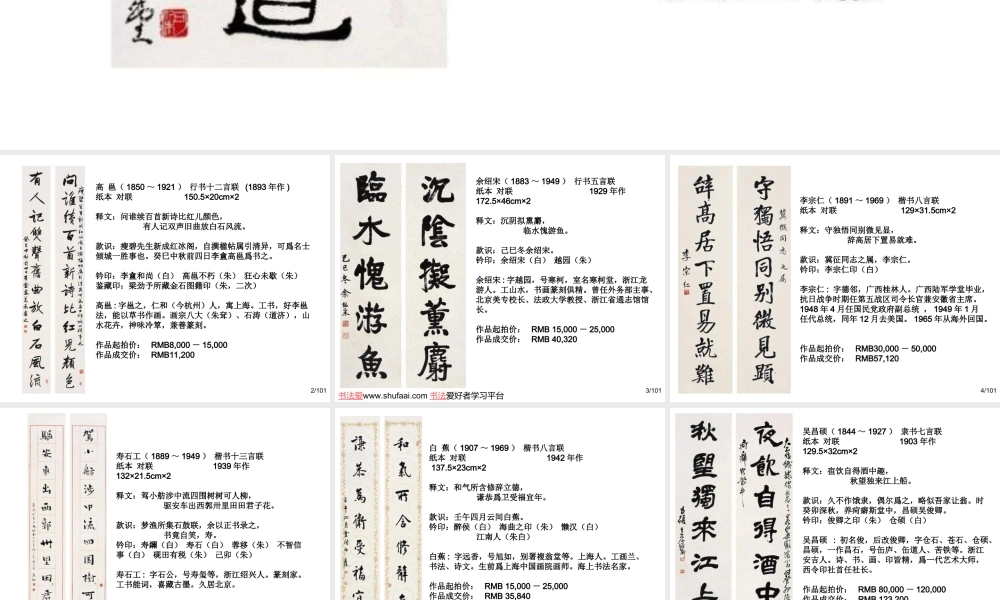 道
有人記雙聲舊曲放白石風流
問誰續百首新詩比紅兒顏色
高 邕（ 1850 ～ 1921 ） 行书十二言联 （1893 年作 ）
纸本 对联 150.5×20cm×2
释文：问谁续百首新诗比红儿颜色，
有人记双声旧曲放白石风流。
款识：瘦碧先生新成红冰阁，自撰楹帖属引清异，可爲名士
倾城一胜事也。癸巳中秋前四日李盦高邕爲书之。
钤印：李盦和尚（白） 高邕不朽（朱） 狂心未歇（朱）
鉴藏印：梁劭予所藏金石图籍印（朱，二次）
高邕：字邕之，仁和（今杭州）人，寓上海。工书，好李邕
法，能以草书作画。画宗八大（朱耷）、石涛（道济），山
水花卉，神味冷蕈，兼善篆刻。
作品起拍价： RMB8,000 － 15,000
作品成交价： RMB11,200
2/101
臨水愧游魚
沉陰擬薰麝
己巳冬余紹宋
余绍宋（ 1883 ～ 1949 ） 行书五言联
纸本 对联 1929 年作
172.5×46cm×2
释文：沉阴拟薰麝，
临水愧游鱼。
款识：己巳冬余绍宋。
钤印：余绍宋（白） 越园（朱）
余绍宋：字越园，号寒柯，室名寒柯堂，浙江龙
游人。工山水，书画篆刻俱精。曾任外务部主事、
北京美专校长、法政大学教授、浙江省通志馆馆
长。
作品起拍价： RMB 15,000 － 25,000
作品成交价： RMB 40,320
书法爱www.shufaai.com 书法爱好者学习平台
3/101
辥高居下置易就難
守獨悟同别微見顕
李宗仁
李宗仁（ 1891 ～ 1969 ） 楷书八言联
纸本 对联 129×31.5cm×2
释文：守独悟同别微见显，
辞高居下置易就难。
款识：冀侹同志之属，李宗仁。
钤印：李宗仁印（白）
李宗仁：字德邻，广西桂林人。广西陆军学堂毕业，
抗日战争时期任第五战区司令长官兼安徽省主席。
1948 年 4 月任国民党政府副总统 ， 1949 年 1 月
任代总统，同年 12 月去美国。 1965 年从海外回国。
作品起拍价： RMB30,000 － 50,000
作品成交价： RMB57,120
4/101
驅安車出西郭卅里田
駕小舫涉中流四围樹
寿石工（ 1889 ～ 1949 ） 楷书十三言联
纸本 对联 1939 年作
132×21.5cm×2
释文：驾小舫涉中流四围树树可人柳，
驱安车出西郭卅里田田君子花。
款识：梦渔所集石鼓联，余以正书录之，
书竟自笑，寿。
钤印：寿鑈（白） 寿石（白） 蓉移（朱） 不智信
事（白） 砚田有税（朱） 己卯（朱）
寿石工：字石公，号寿玺等，浙江绍兴人。篆刻家，
工书能词，喜藏古墨。久居北京。
謙恭爲衛受福
和氣所含修辭
白 蕉（ 1907 ～ 1969 ） 楷书八言联
纸本 对联 1942 年作
137.5×23cm×2
释文：和气所含修辞立德，
谦恭爲卫受福宜年。
款识：壬午四月云间白蕉。
钤印：醉侯（白） 海曲之印（朱） 懒汉（白）
江南人（朱白）
白蕉：字远香，号旭如，别署複翁堂等。上海人，工画兰、
书法、诗文。生前爲上海中国画院画师。海上书法名家。
作品起拍价： RMB 15,000 － 25,000
作品成交价： RMB 35,840
秋朢獨來江上
夜飲自得酒中
吴昌硕（ 1844 ～ 1927 ） 隶书七言联
纸本 对联 1903 年作
129.5×32cm×2
释文：𡙇饮自得酒中趣，
秋望独来江上船。
款识：久不作饿隶，偶尔爲之，略似吾家让翁。时
癸卯深秋，养疴癖斯堂中，昌硕吴俊卿。
钤印：俊卿之印（朱） 仓硕（白）
吴昌硕 ：初名俊，后改俊卿，字仓石、苍石、仓硕、
昌硕，一作昌石，号缶庐、缶道人、苦铁等。浙江
安吉人。诗、书、画、印皆精，爲一代艺术大师，
西令印社首任社长。
作品起拍价： RMB 80,000 － 120,000
作品成交价： RMB 123,200